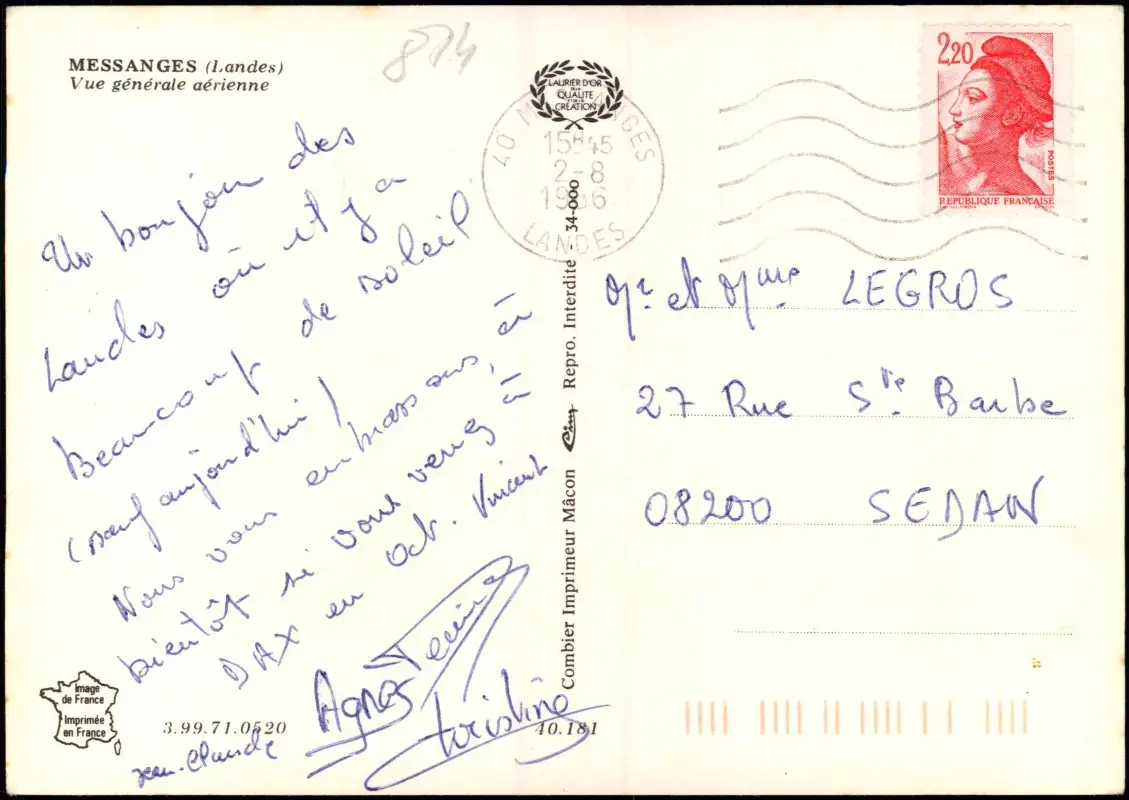 MESSANGES (Landes)
Vue générale aérienne
874
Un bonjour des
Landes où il y a
Beaucoup de soleil
(sauf aujourd'hui)
Nous vous embrassons, à
bientôt si vous venez à
DAX en Oct. Vincent
Agnes
Christine
Jean-Claude
Image
de France
Imprimée
en France
3.99.71.0520
40.181
LAURIER D'OR
DE LA
QUALITE
ET DE LA
CREATION
40 MESSANGES
15H45
2-8
1986
LANDES
Combier Imprimeur Mâcon Cim Repro. Interdite - 34-000
2,20
POSTES
REPUBLIQUE FRANÇAISE
Mr et Mme LEGROS
27 Rue Ste Barbe
08200 SEDAN